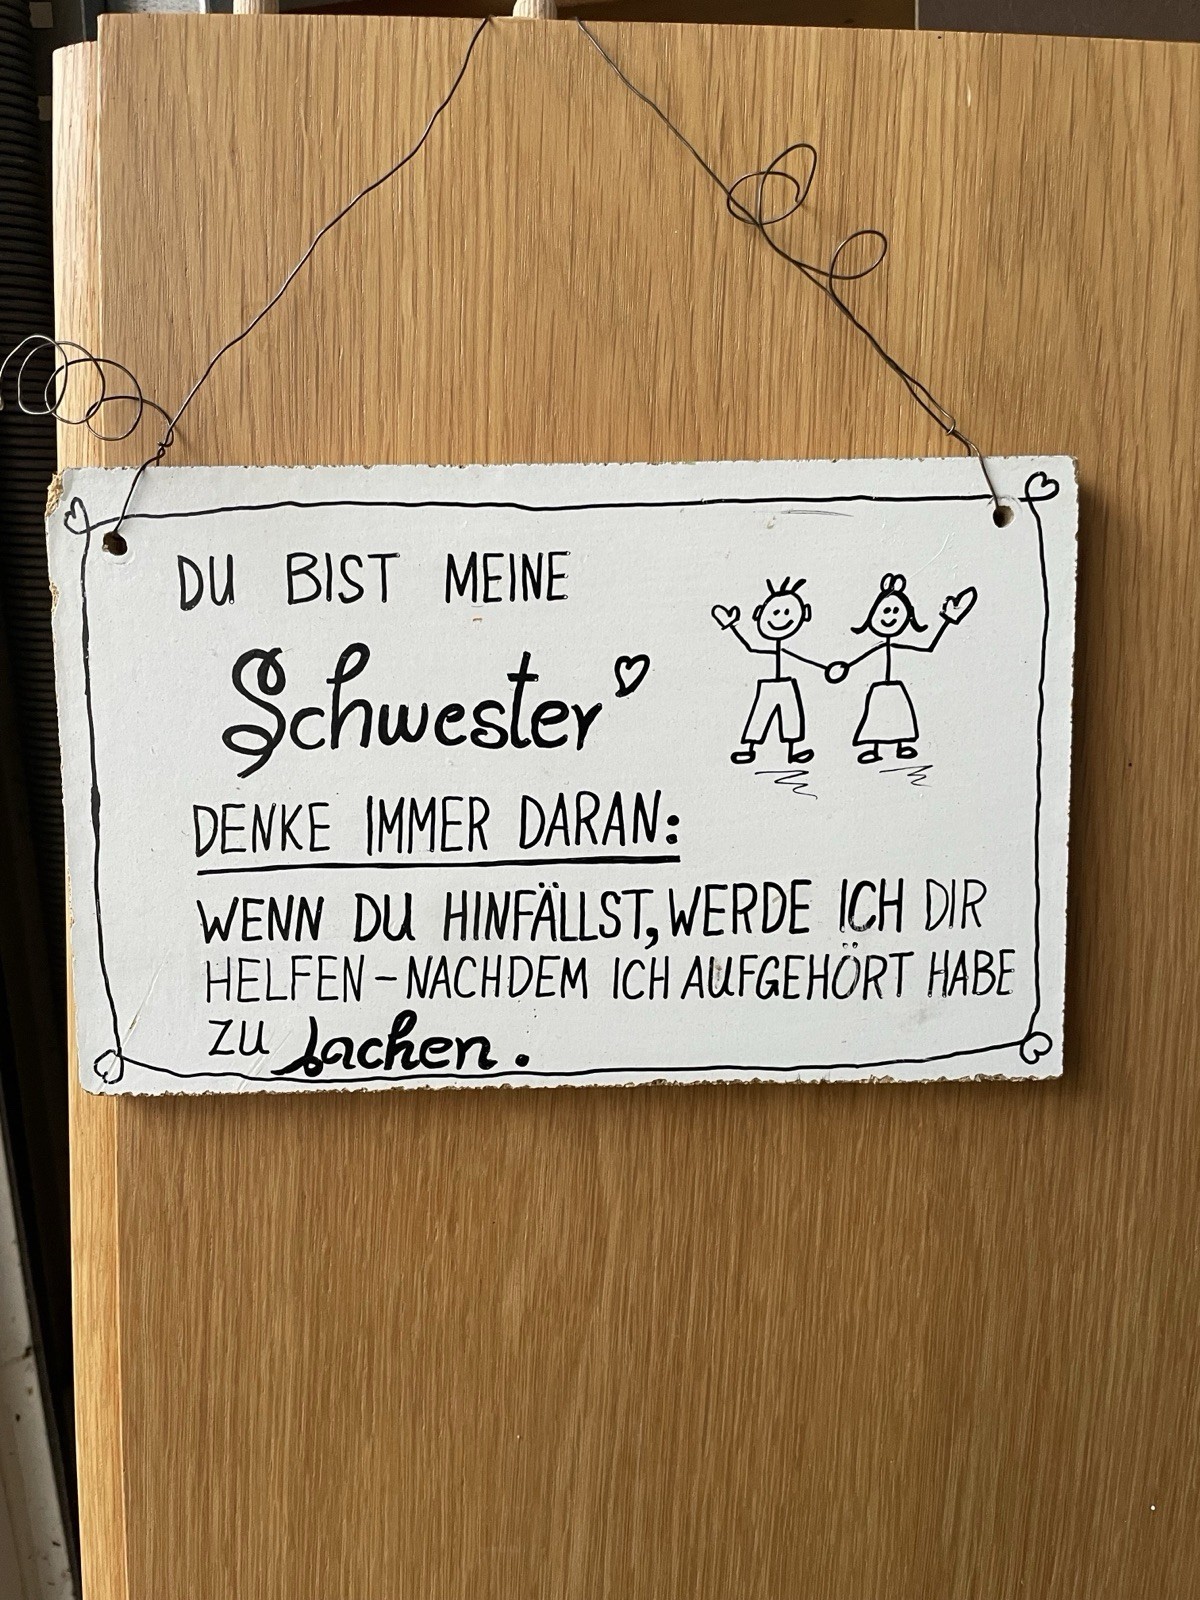 DU BIST MEINE
Schwester
DENKE IMMER DARAN:
WENN DU HINFÄLLST, WERDE ICH DIR
HELFEN - NACHDEM ICH AUFGEHÖRT HABE
ZU lachen.